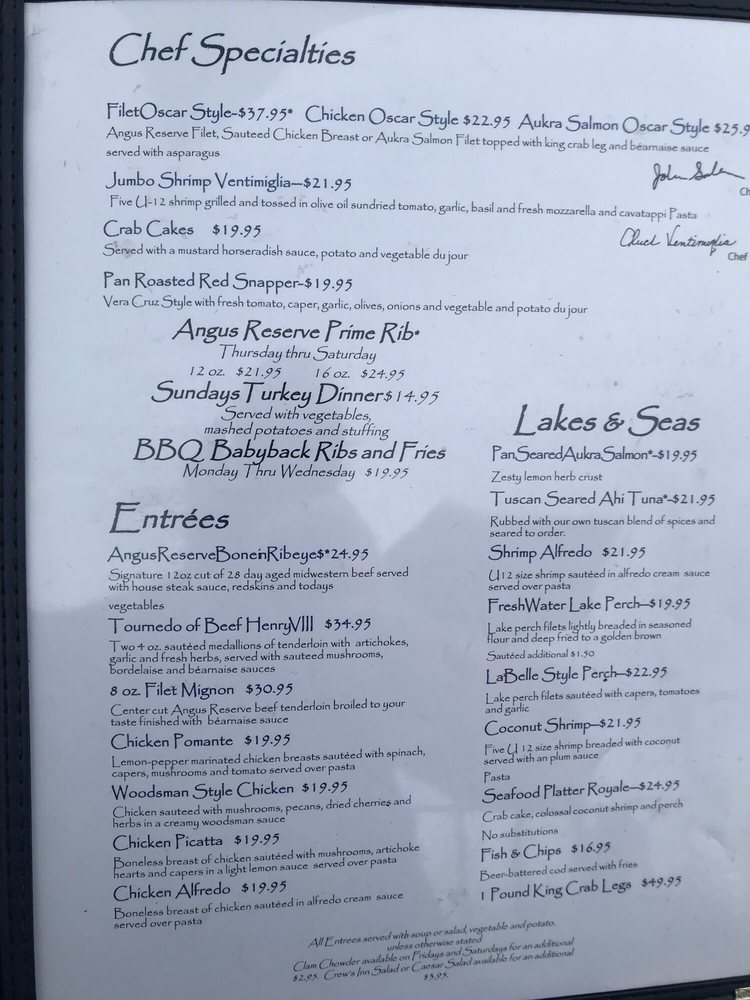 Chef Specialties
Filet Oscar Style-$37.95* Chicken Oscar Style $22.95 Aukra Salmon Oscar Style $25.9
Angus Reserve Filet, Sauteed Chicken Breast or Aukra Salmon Filet topped with king crab leg and béarnaise sauce
served with asparagus
Jumbo Shrimp Ventimiglia—$21.95
Five U-12 shrimp grilled and tossed in olive oil sundried tomato, garlic, basil and fresh mozzarella and cavatappi Pasta
John
Ch
Crab Cakes $19.95
Served with a mustard horseradish sauce, potato and vegetable du jour
Chuck Ventimiglia
Chef
Pan Roasted Red Snapper-$19.95
Vera Cruz Style with fresh tomato, caper, garlic, olives, onions and vegetable and potato du jour
Angus Reserve Prime Rib*
Thursday thru Saturday
12 oz. $21.95 16 oz. $24.95
Sundays Turkey Dinner $14.95
Served with vegetables,
mashed potatoes and stuffing
BBQ Babyback Ribs and Fries
Monday Thru Wednesday $19.95
Entrées
Angus Reserve Bonein Ribeye$*24.95
Signature 12oz cut of 28 day aged midwestern beef served
with house steak sauce, redskins and todays
vegetables
Tournedo of Beef Henry VIII $34.95
Two 4 oz. sautéed medallions of tenderloin with artichokes,
garlic and fresh herbs, served with sauteed mushrooms,
bordelaise and béarnaise sauces
8 oz. Filet Mignon $30.95
Center cut Angus Reserve beef tenderloin broiled to your
taste finished with béarnaise sauce
Chicken Pomante $19.95
Lemon-pepper marinated chicken breasts sautéed with spinach,
capers, mushrooms and tomato served over pasta
Woodsman Style Chicken $19.95
Chicken sauteed with mushrooms, pecans, dried cherries and
herbs in a creamy woodsman sauce
Chicken Picatta $19.95
Boneless breast of chicken sautéed with mushrooms, artichoke
hearts and capers in a light lemon sauce served over pasta
Chicken Alfredo $19.95
Boneless breast of chicken sautéed in alfredo cream sauce
served over pasta
Lakes & Seas
Pan Seared Aukra Salmon*-$19.95
Zesty lemon herb crust
Tuscan Seared Ahi Tuna*-$21.95
Rubbed with our own tuscan blend of spices and
seared to order.
Shrimp Alfredo $21.95
U12 size shrimp sautéed in alfredo cream sauce
served over pasta
FreshWater Lake Perch—$19.95
Lake perch filets lightly breaded in seasoned
flour and deep fried to a golden brown
Sautéed additional $1.50
LaBelle Style Perch—$22.95
Lake perch filets sautéed with capers, tomatoes
and garlic
Coconut Shrimp—$21.95
Five U 12 size shrimp breaded with coconut
served with an plum sauce
Pasta
Seafood Platter Royale—$24.95
Crab cake, colossal coconut shrimp and perch
No substitutions
Fish & Chips $16.95
Beer-battered cod served with fries
1 Pound King Crab Legs $49.95
All Entrees served with soup or salad, vegetable and potato.
unless otherwise stated
Clam Chowder available on Fridays and Saturdays for an additional
$2.95. Crew's Inn Salad or Caesar Salad available for an additional
$3.95.